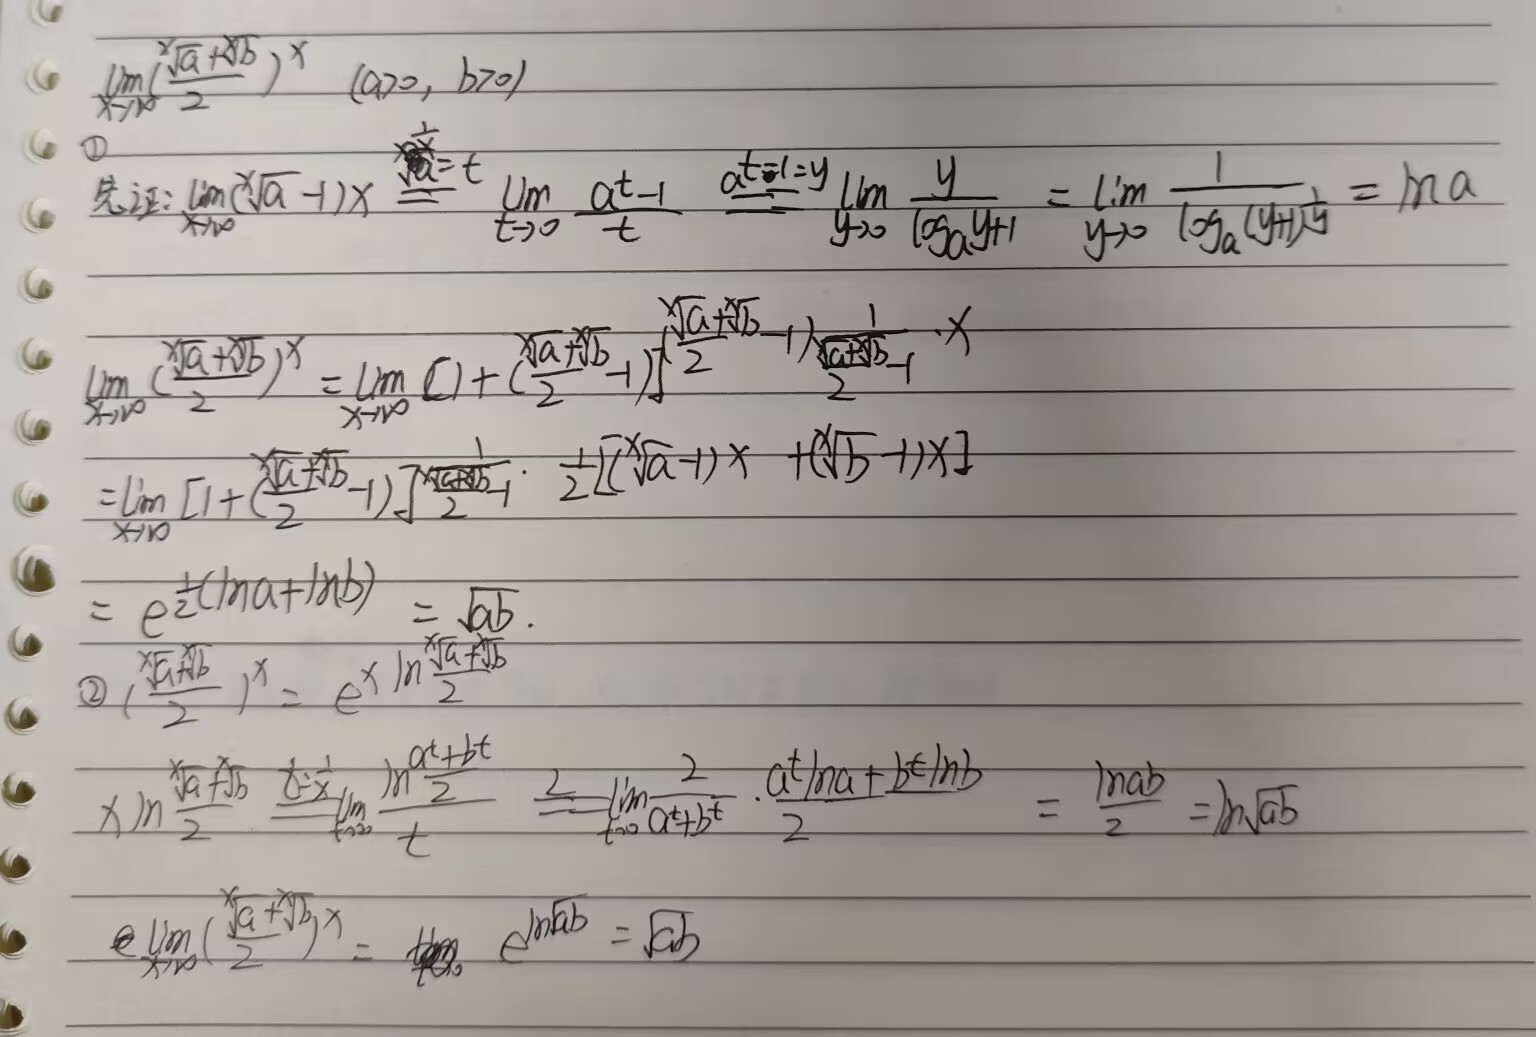 lim_{x→∞} (\frac{\sqrt[x]{a}+\sqrt[x]{b}}{2})^x (a>0, b>0)
①
先证: lim_{x→∞} (\sqrt[x]{a}-1)x \overset{\frac{1}{x}=t}{=} lim_{t→0} \frac{a^t-1}{t} \overset{a^t-1=y}{=} lim_{y→0} \frac{y}{log_a y+1} = lim_{y→0} \frac{1}{log_a (y+1)^{\frac{1}{y}}} = ln a
lim_{x→∞} (\frac{\sqrt[x]{a}+\sqrt[x]{b}}{2})^x = lim_{x→∞} [1+(\frac{\sqrt[x]{a}+\sqrt[x]{b}}{2}-1)]^{(\frac{\sqrt[x]{a}+\sqrt[x]{b}}{2}-1) \frac{1}{\frac{\sqrt[x]{a}+\sqrt[x]{b}}{2}-1} ·x}
= lim_{x→∞} [1+(\frac{\sqrt[x]{a}+\sqrt[x]{b}}{2}-1)]^{\frac{1}{\frac{\sqrt[x]{a}+\sqrt[x]{b}}{2}-1} · \frac{1}{2}[(\sqrt[x]{a}-1)x+(\sqrt[x]{b}-1)x]}
= e^{\frac{1}{2}(lna+lnb)} = \sqrt{ab}.
② (\frac{\sqrt[x]{a}+\sqrt[x]{b}}{2})^x = e^{x ln\frac{\sqrt[x]{a}+\sqrt[x]{b}}{2}}
x ln\frac{\sqrt[x]{a}+\sqrt[x]{b}}{2} \overset{t=\frac{1}{x}}{=} lim_{t→0} \frac{ln\frac{a^t+b^t}{2}}{t} \overset{2}{=} lim_{t→0} \frac{2}{a^t+b^t} · \frac{a^t lna+b^t lnb}{2} = \frac{lnab}{2} = ln\sqrt{ab}
lim_{x→∞} (\frac{\sqrt[x]{a}+\sqrt[x]{b}}{2})^x = e^{ln\sqrt{ab}} = \sqrt{ab}